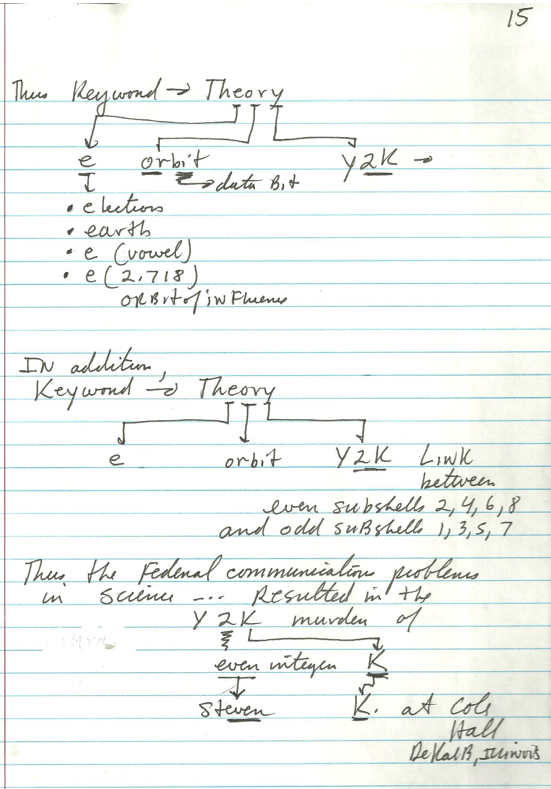 15
Thus Keyword → Theory
e orbit Y2K →
→ data Bit
• electrons
• earth
• e (vowel)
• e (2.718)
ORBit of inFluence
IN addition,
Keyword → Theory
e orbit Y2K Link
between
even subshells 2, 4, 6, 8
and odd suBshells 1, 3, 5, 7
Thus the Federal communication problems
in science ... Resulted in the
Y 2K murder of
even integer K
Steven K. at Cole
Hall
DeKalB, Illinois